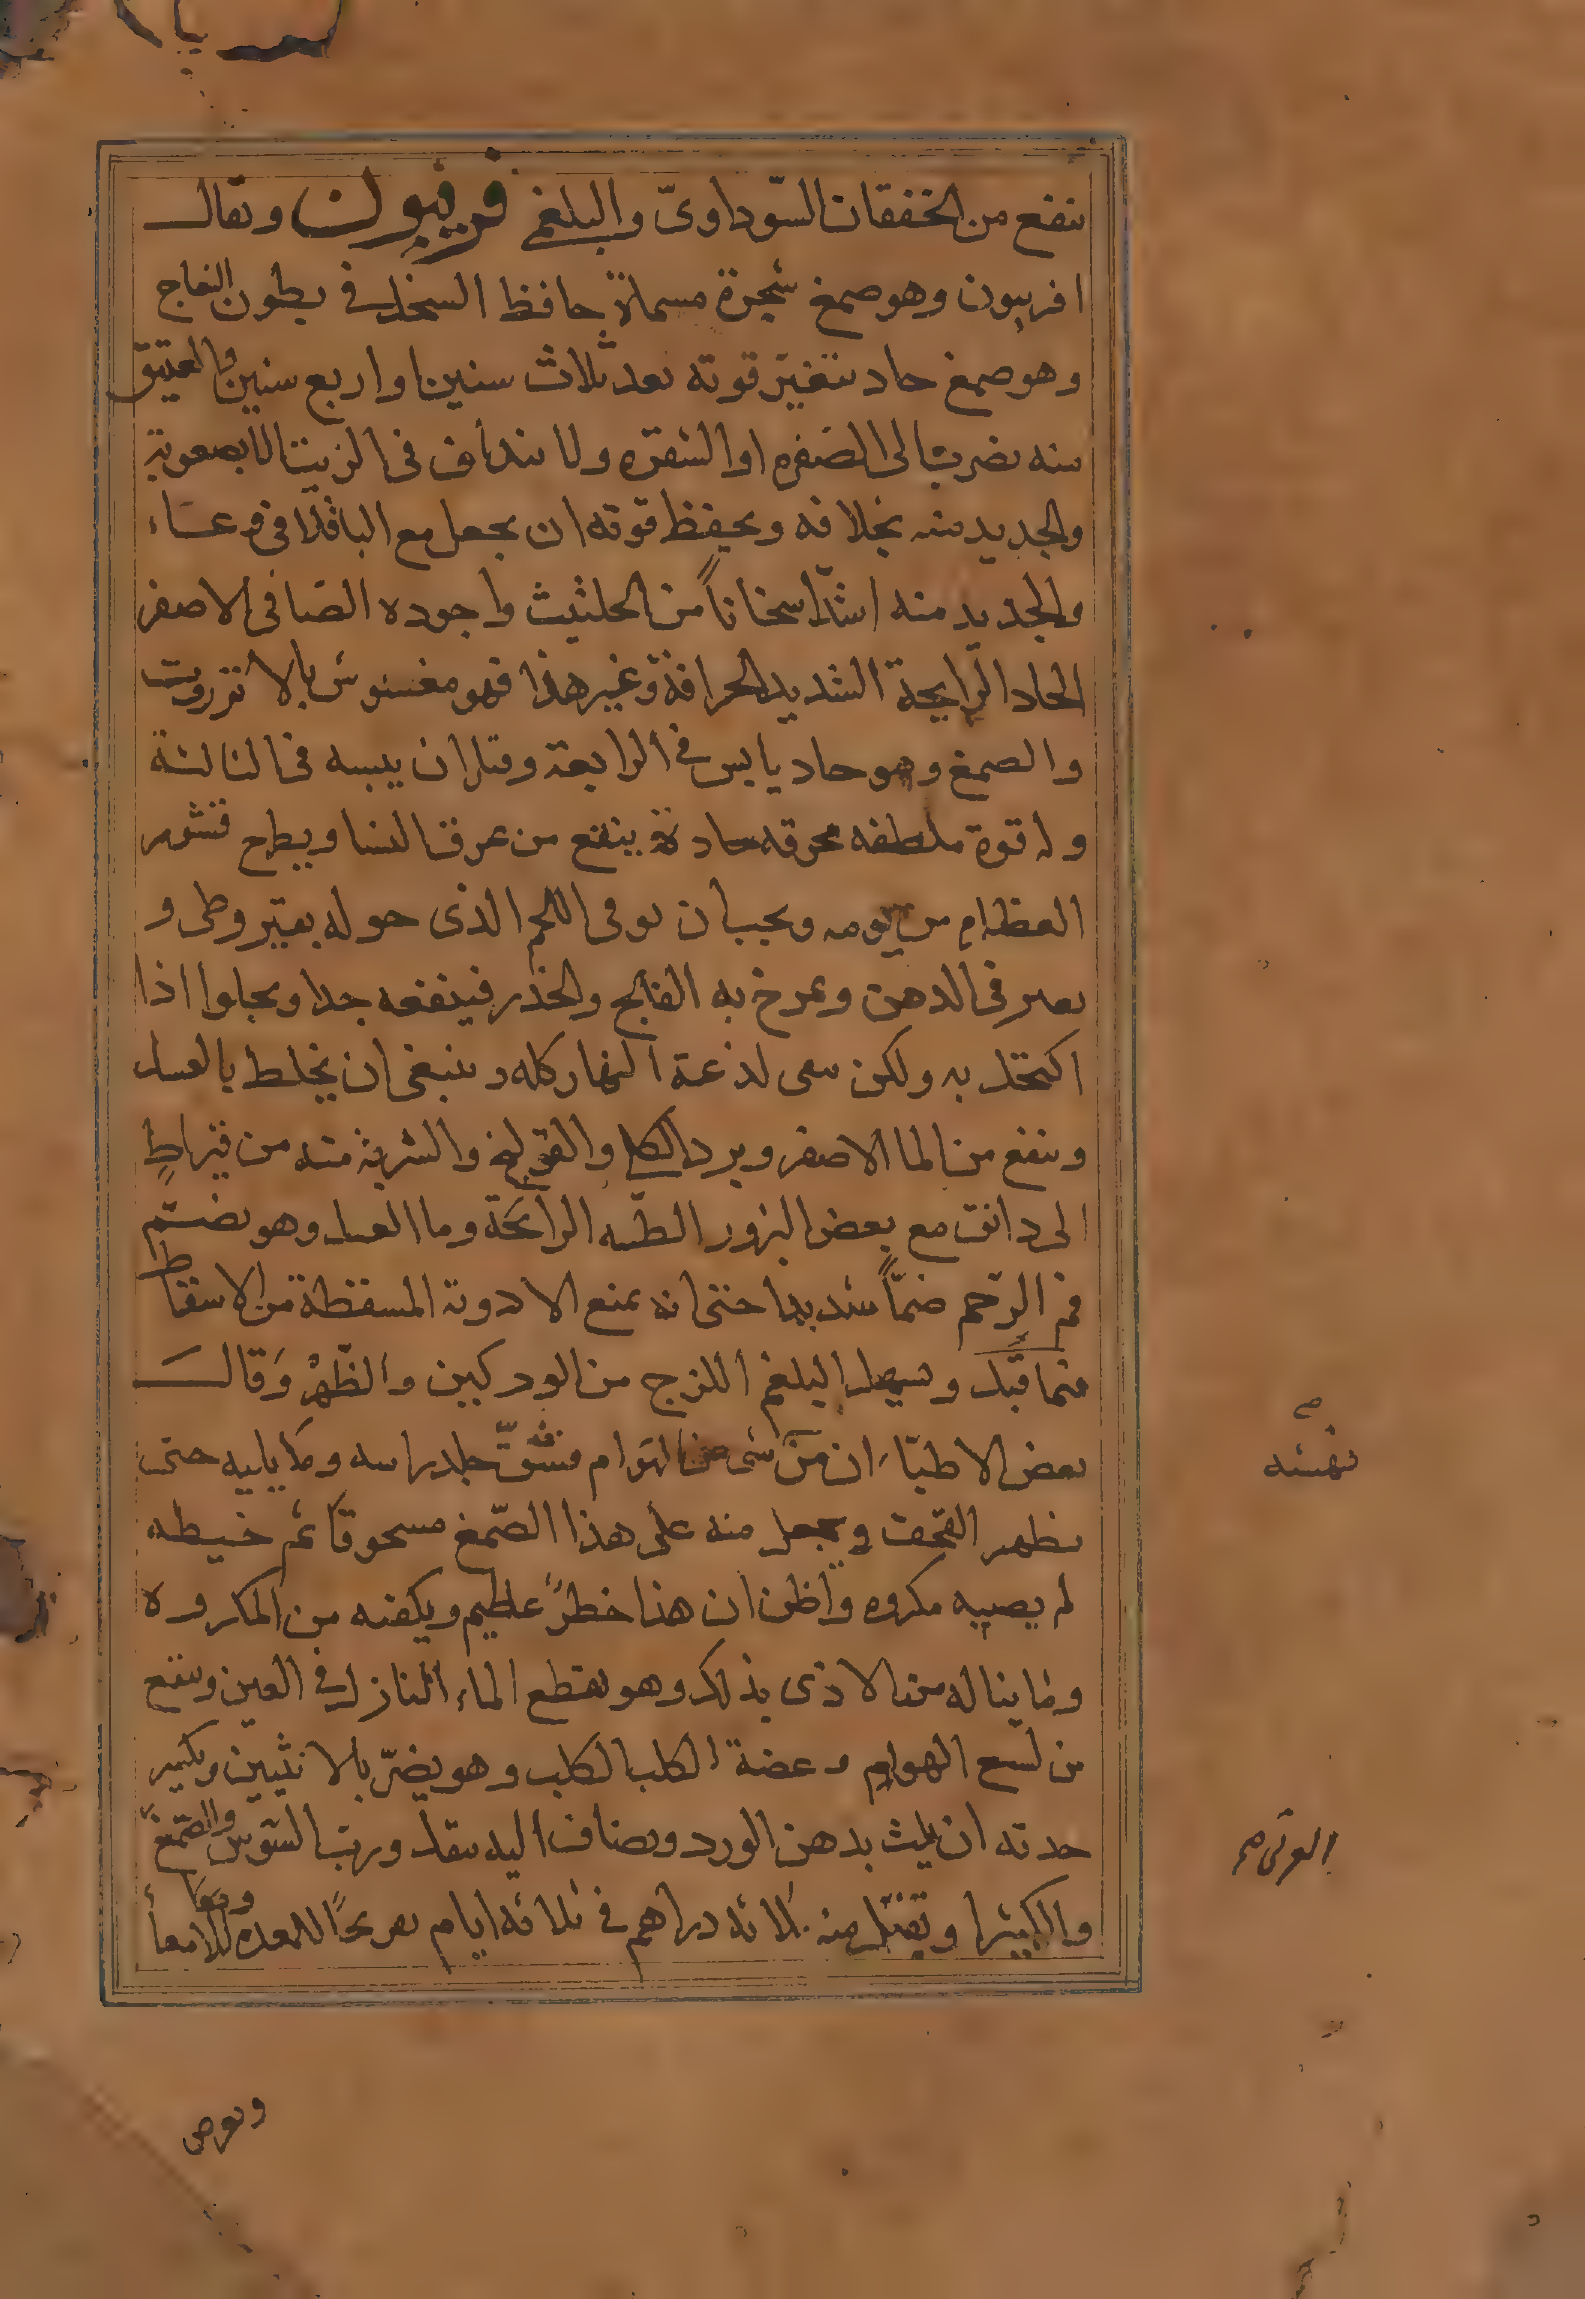 ينفع من الخفقان السّوداوىّ والبلغمى فربيون ويقال
افربيون وهو صمغ شجرة مسماة حافظ السخل فى بطون النعاج
وهو صمغ حاد تتغيّر قوته بعد ثلاث سنين او اربع سنين والعتيق
منه يضرب الى الصّفره او الشقره ولا ينداف فى الزيت الا بصعوبة
والجديد منه بخلافه ويحفظ قوته ان يجعل مع الباقلا فى وعاء
والجديد منه اشدّ اسخاناً من الحلتيت واجوده الصّافى الاصفر
الحاد الرّايحة الشديد الحرافة وغير هذا فهو مغشوش بالانزروت
والصمغ وهو حاد يابس فى الرابعة وقيل ان يبسه فى الثالثة
وله قوة ملطفه محرقه حادة ينفع من عرق النسا ويطرح قشور
العظام من يومه ويجب ان يوقى اللحم الذى حوله بقيروطى و
يعبر فى الدهن ويمرخ به الفالج والخدر فينفعه جدا ويجلوا اذا
اكتحل به ولكن يبقى لذعة النهار كله وينبغى ان يخلط بالعسل
وينفع من الما الاصفر وبرد الكلى والقولنج والشربة منه من قيراطٍ
الى دانق مع بعض البزور الطيبه الرايحة وما العسل وهو يضمّ
فم الرّحم ضمّاً شديدا حتى انه يمنع الادوية المسقطة من الاسقاط
فيما قيل ويسهل البلغم اللزج من الوركين والظّهر وقال
بعض الاطبّاء ان من شى من الهوام فشقّ جلد راسه وما يليه حتى
يظهر القحف ويجعل منه على هذا الصّمغ مسحوقا ثم خيطه
لم يصيبه مكروه واظن ان هذا خطرٌ عظيم ويكفنه من المكروه
وما يناله من الاذى بذلك وهو يقطع الماء النازل فى العين وينفع
من لسع الهوام وعضة الكلب الكلب وهو يضرّ بالانثيين ويكسر
حدته ان يلث بدهن الورد ويضاف اليه مقل ورب السوس والصّمغ
والكثيرا ويقتل منه ثلاثه دراهم فى ثلاثه ايام تقريحا للمعده والامعا
نهشه